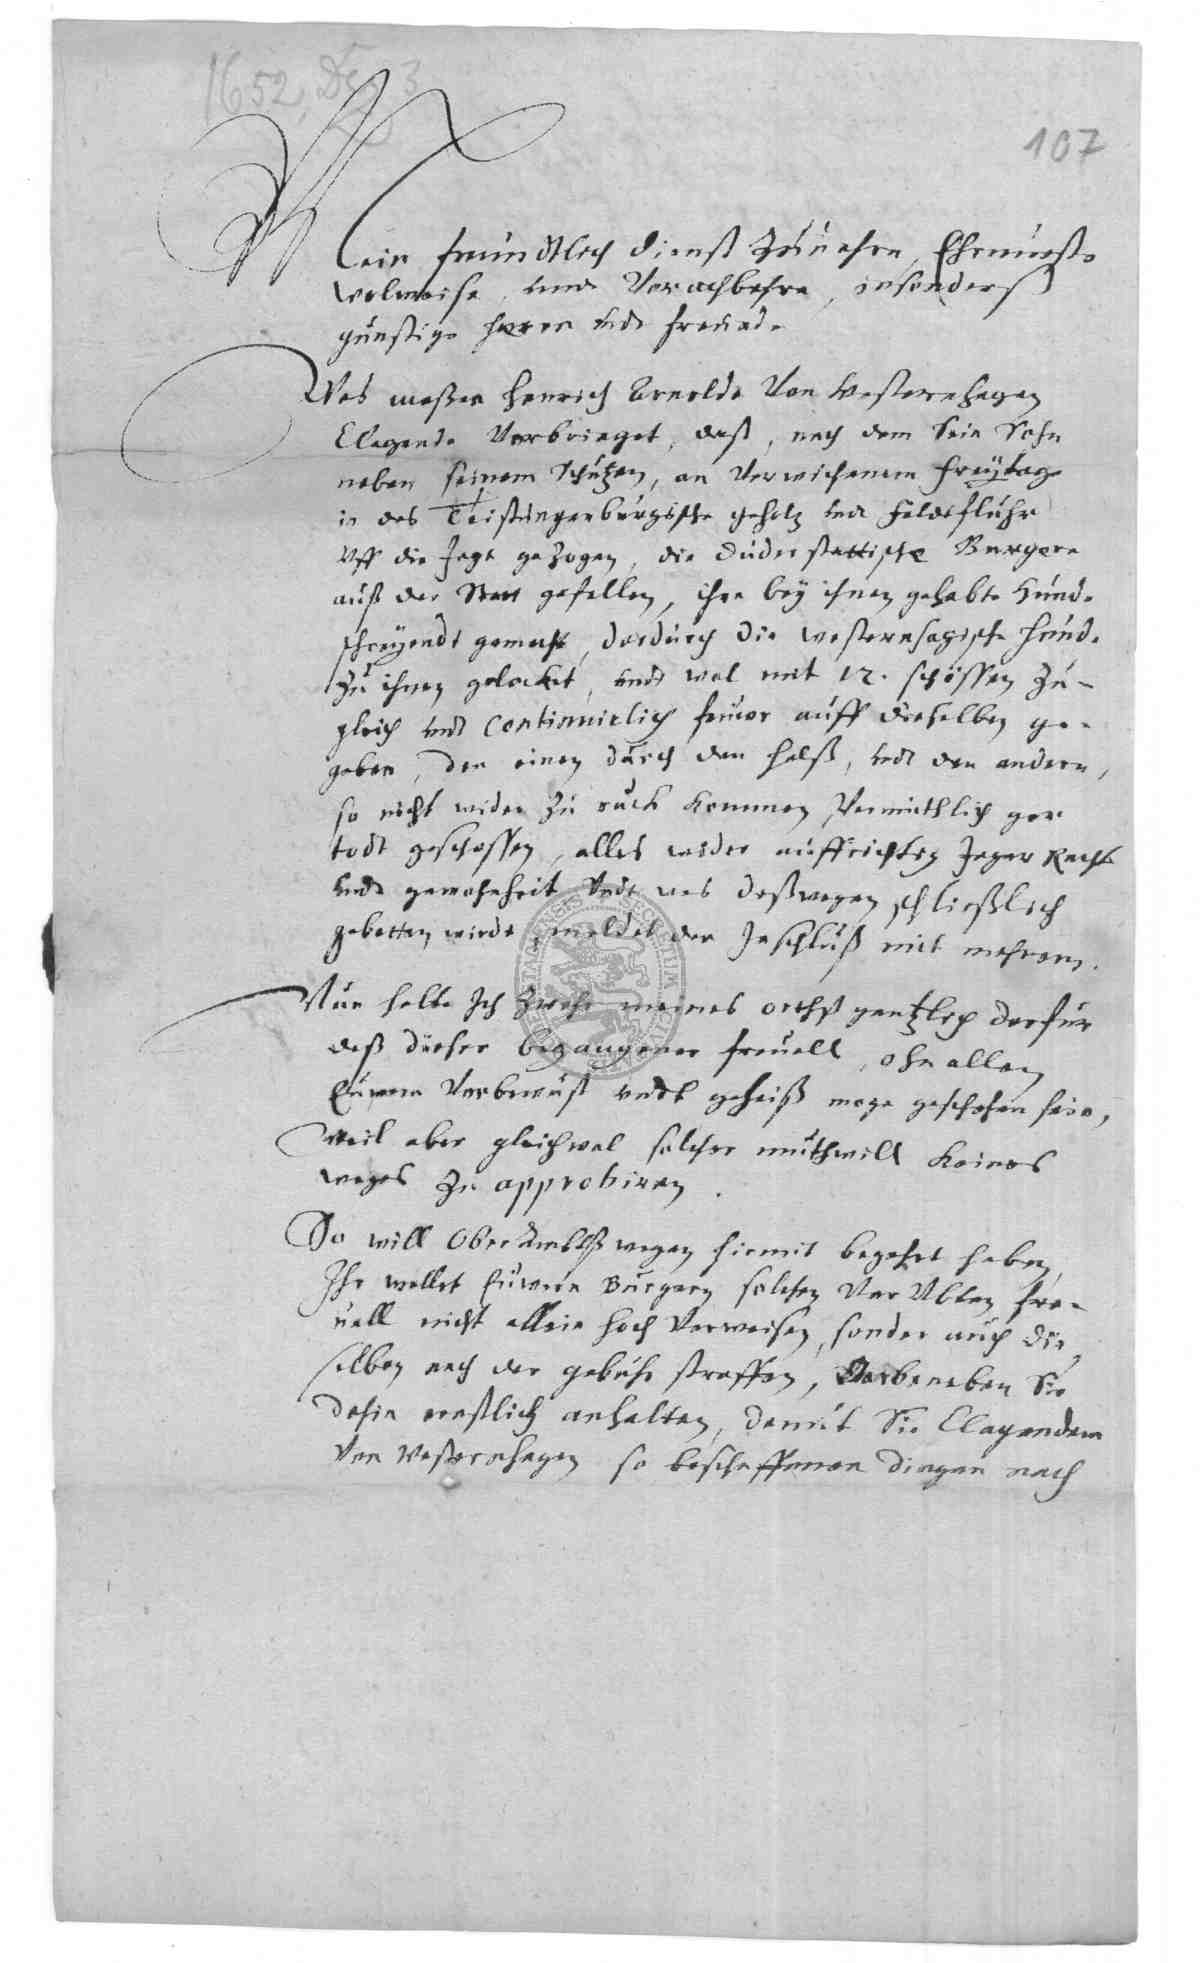 1652, Dez 3
107
Mein freundtlich dienst zuuohrn, Ehrnueste
wolweise, undt Vorachtbahre, insonders
günstige herren undt freundt.
Was maßen Henrich Arnoldt Von Westernhagen
Clagendt Vorbringet, daß, nach dem Sein Sohn
neben seinem Schützen, an Verwichenem Freytage
in das Teistungenburgische geholz undt Feldtfluhr
Uff die Jagt gezogen, die Duderstattische Burgere
auß der Statt gefallen, ihre bey ihnen gehabte Hunde
schreyendt gemacht, dardurch die westernhagische hunde
zu ihnen gelocket, undt wol mit 12. schössen zu-
gleich undt continuirlich feuwer auff dieselben ge-
geben, den einen durch den halß, undt den andern,
so nicht wider zu ruck kommen Vermuthlich gar
todt geschossen, alles wider auffrichtig Jager Recht
undt gewohnheit Undt was deßwegen schließlich
gebetten wirdt, meldet der Inschluß mit mehrem.
Nun halte Ich zwahr meines orthß gentzlich darfur
daß dieser begangener freuell, ohn allen
Euwern Vorbewust undt geheiß moge geschehen sein,
Weil aber gleichwol solcher muthwill keines
weges zu approbiren.
So will OberAmbtß wegen hiermit begehrt haben,
Ihr wollet Euwern Burgern solchen Ver Ubten fre-
uell nicht allein hoch Verweisen, sonder auch die-
selben nach der gebuhr straffen, Darbeneben Sie
dahin ernstlich anhalten, damit Sie Clagendem
Von Westernhagen so beschaffenen dingen nach